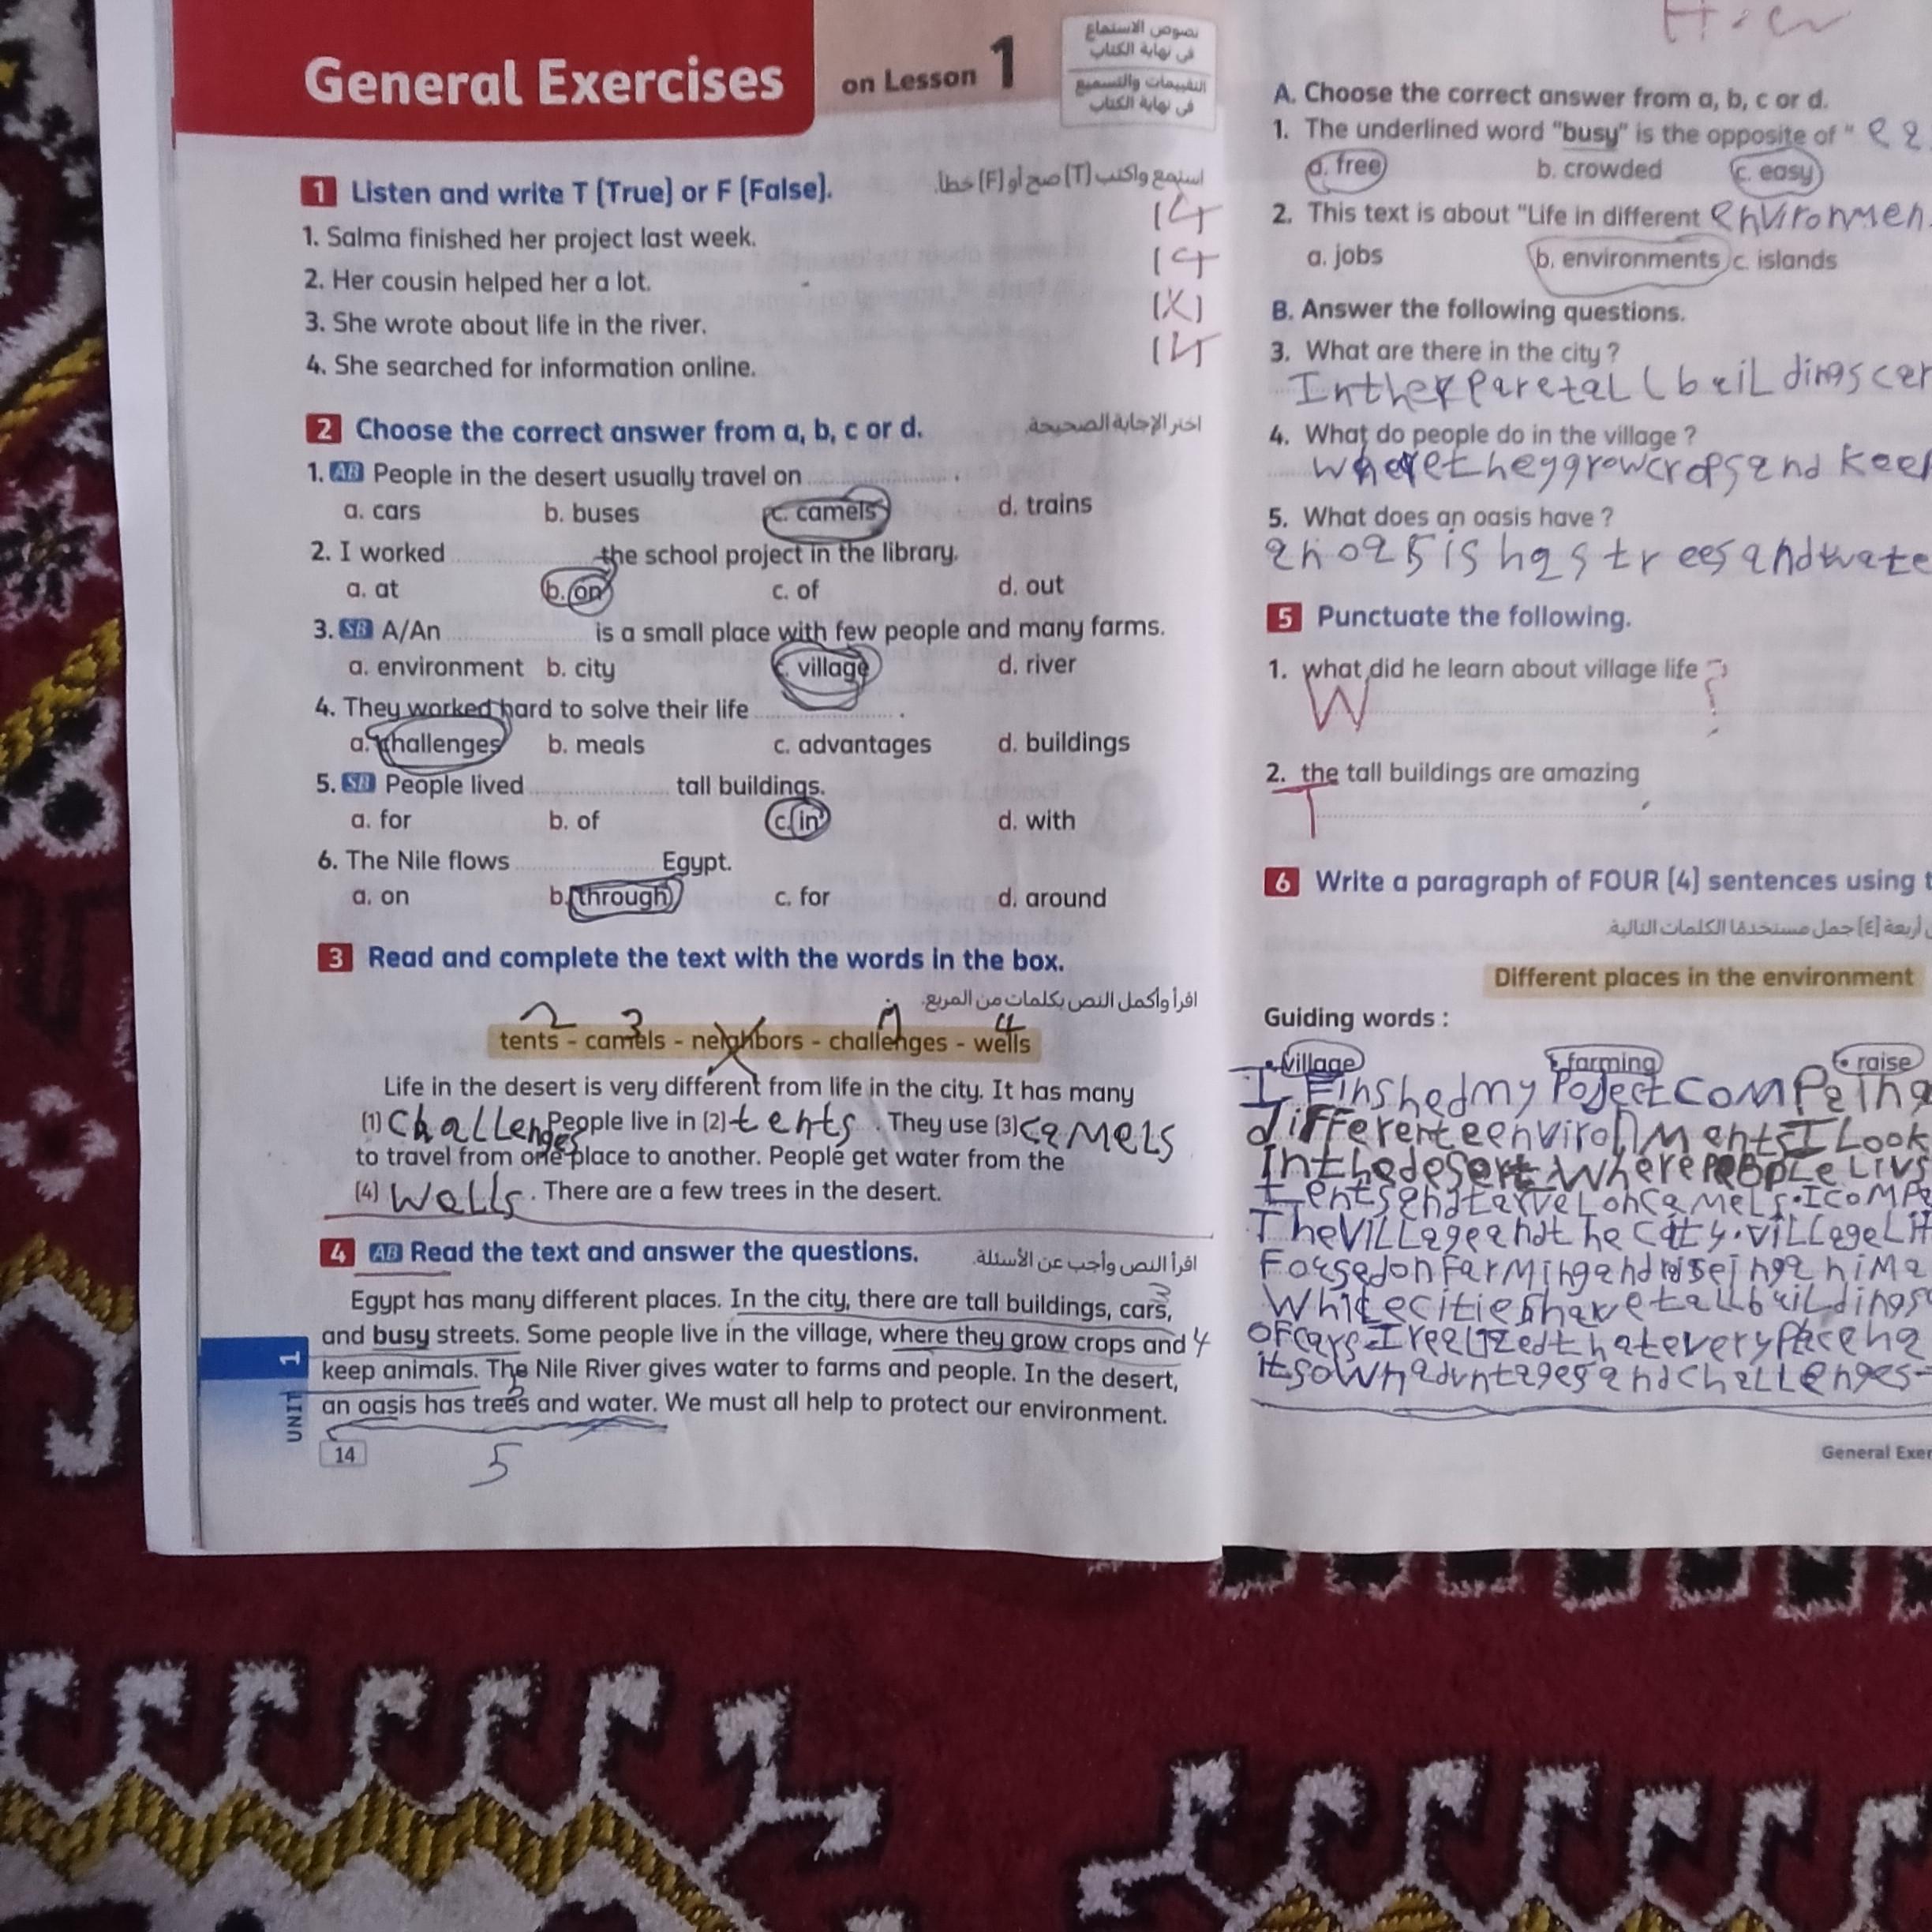 General Exercises on Lesson 1
نصوص الاستماع
في نهاية الكتاب
التقييمات والتسميع
في نهاية الكتاب
1 Listen and write T (True) or F (False).
استمع واكتب (T) صح أو (F) خطأ.
1. Salma finished her project last week.
2. Her cousin helped her a lot.
3. She wrote about life in the river. (X)
4. She searched for information online.
2 Choose the correct answer from a, b, c or d.
اختر الإجابة الصحيحة.
1. AB People in the desert usually travel on .
a. cars b. buses c. camels d. trains
2. I worked the school project in the library.
a. at b. on c. of d. out
3. SB A/An is a small place with few people and many farms.
a. environment b. city c. village d. river
4. They worked hard to solve their life .
a. challenges b. meals c. advantages d. buildings
5. SB People lived tall buildings.
a. for b. of c. in d. with
6. The Nile flows Egypt.
a. on b. through c. for d. around
3 Read and complete the text with the words in the box.
اقرأ وأكمل النص بكلمات من المربع.
2 3 4
tents - camels - neighbors - challenges - wells
Life in the desert is very different from life in the city. It has many
(1) challenges People live in (2) tents . They use (3) camels
to travel from one place to another. People get water from the
(4) wells . There are a few trees in the desert.
4 AB Read the text and answer the questions.
اقرأ النص وأجب عن الأسئلة.
Egypt has many different places. In the city, there are tall buildings, cars, 3
and busy streets. Some people live in the village, where they grow crops and 4
keep animals. The Nile River gives water to farms and people. In the desert,
an oasis has trees and water. We must all help to protect our environment.
5
UNIT 1
14
A. Choose the correct answer from a, b, c or d.
1. The underlined word "busy" is the opposite of "
a. free b. crowded c. easy
2. This text is about "Life in different environmen
a. jobs b. environments c. islands
B. Answer the following questions.
3. What are there in the city ?
buildings car
4. What do people do in the village ?
where they grow crops and keep
5. What does an oasis have ?
an oasis has trees and wate
5 Punctuate the following.
1. what did he learn about village life ?
W ?
2. the tall buildings are amazing
T .
6 Write a paragraph of FOUR (4) sentences using t
أربعة (٤) جمل مستخدمًا الكلمات التالية.
Different places in the environment
Guiding words :
• village • farming • raise
I Finshed my Poject comPeing
differente environments I Look
In the desert where people Live
tents and tarvel on camels. I comPa
The village and the city. village Lif
Focsed on Farming and raiseing anima
White cities have tall buildings
of cars. I realized that every Place ha
its own advntages and challenges
General Exer